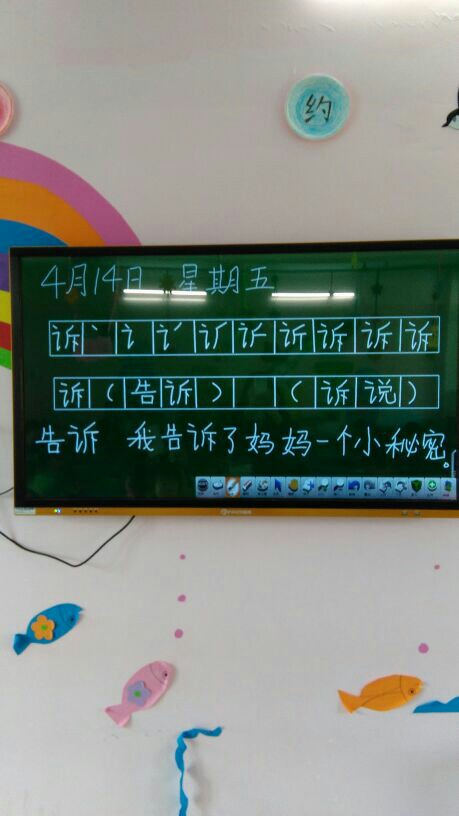 约
4月14日 星期五
诉 丶 讠 诉 诉 诉 诉
诉(告诉) (诉说)
告诉 我告诉了妈妈一个小秘密。